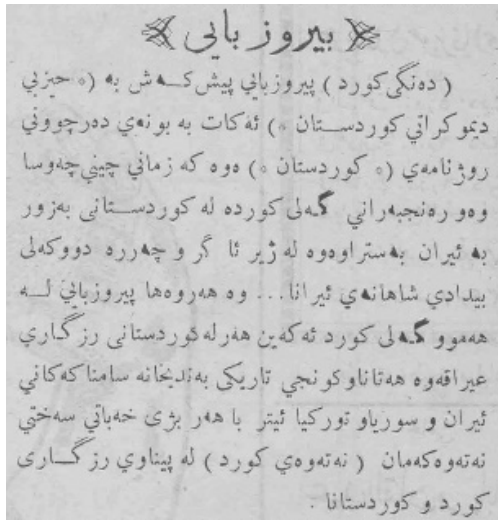 پیروز بایی
( دەنگی کورد ) پیروزبایي پیش کـەش بە (* حیزبي
دیموکراتي کوردســتان *) ئەکات بە بونەي دەرچووني
روژنامەي (* کوردستان *) ەوە کە زماني چیني چەوسا
وەو رەنجبەراني گـەلی کوردە لە کوردســتانی بەزور
بە ئیران بەستراوەوە لە ژیر ئا گر و چەررە دووکەلی
بیدادي شاهانەي ئیرانا... وە هەروەها پیروزبایيٰ لــە
هەموو گـەلی کورد ئەکەین هەر لە کوردستانی رزگاري
عیراقەوە هەتاناو کونجي تاریکی بەندیخانە سامناکەکاني
ئیران و سوریاو تورکیا ئیتر با هەر بژی خەباتي سەختي
نەتەوەکەمان ( نەتەوەي کورد ) لە پیناوي رزگــاری
کورد و کوردستانا .